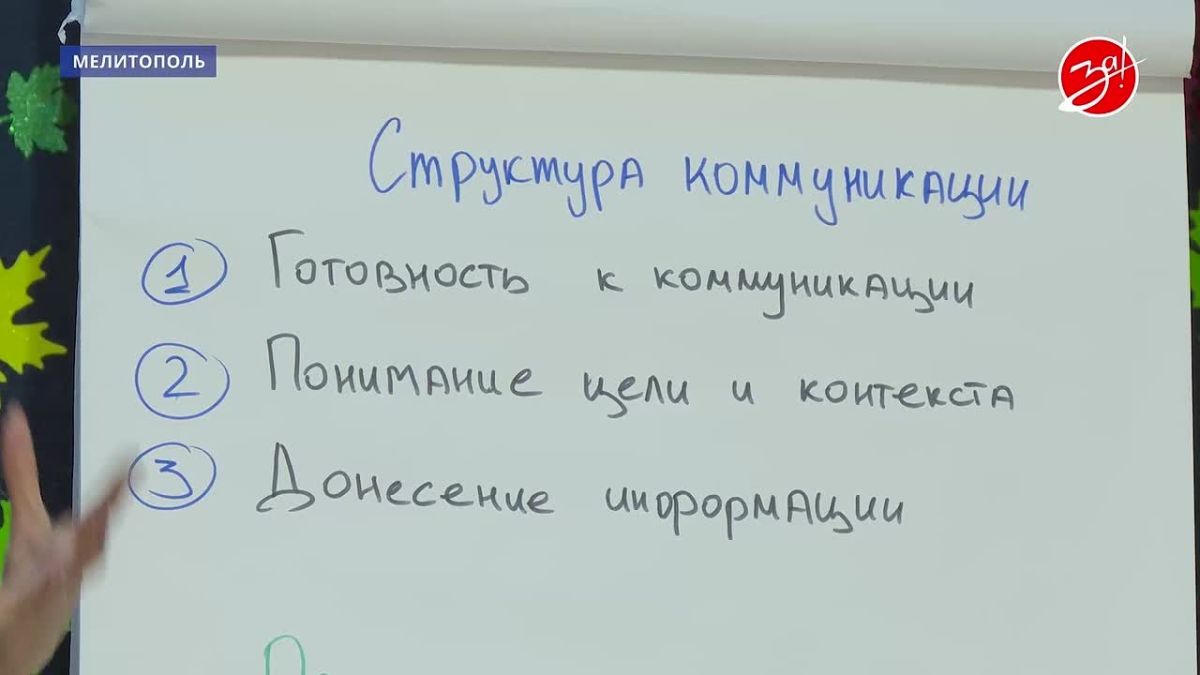 МЕЛИТОПОЛЬ
за!
Структура коммуникации
1 Готовность к коммуникации
2 Понимание цели и контекста
3 Донесение информации